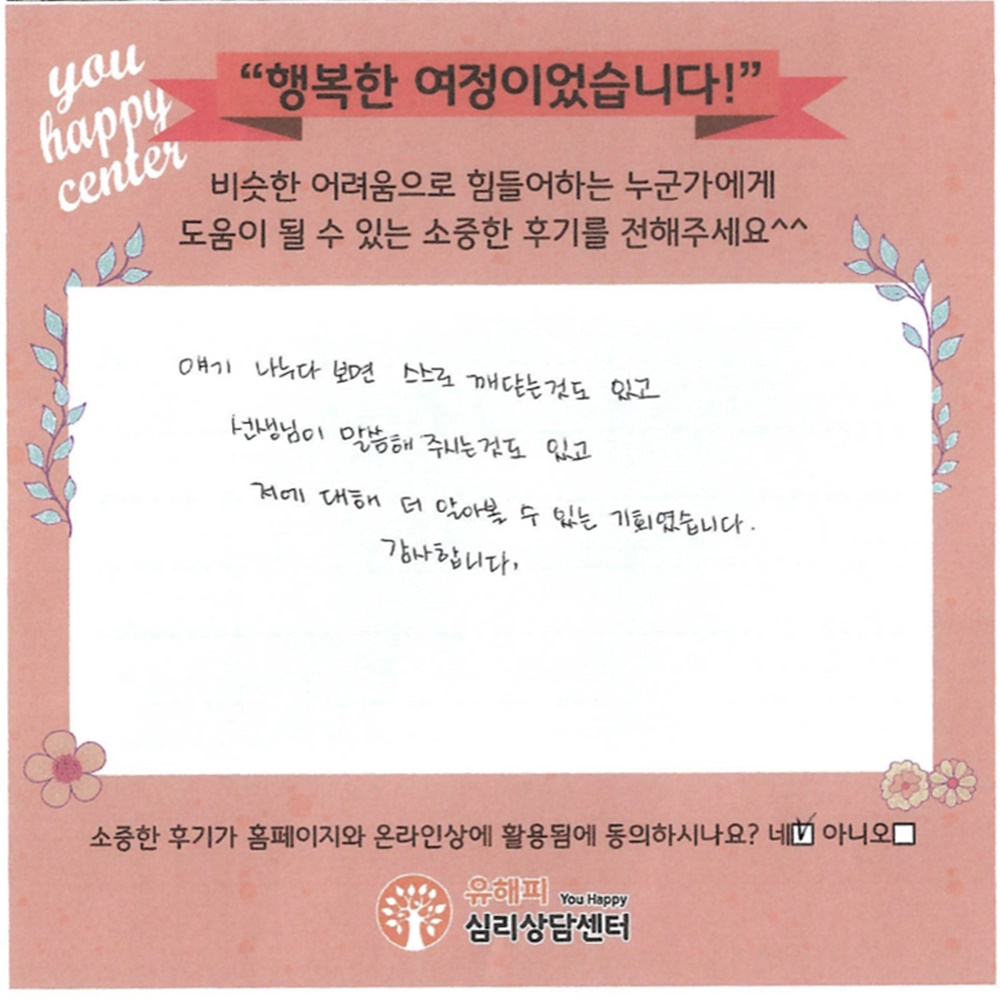 you
happy
center
“행복한 여정이었습니다!”
비슷한 어려움으로 힘들어하는 누군가에게
도움이 될 수 있는 소중한 후기를 전해주세요^^
얘기 나누다 보면 스스로 깨닫는것도 있고
선생님이 말씀해 주시는것도 있고
저에 대해 더 알아볼 수 있는 기회였습니다.
감사합니다.
소중한 후기가 홈페이지와 온라인상에 활용됨에 동의하시나요? 네☑ 아니오☐
유해피 You Happy
심리상담센터